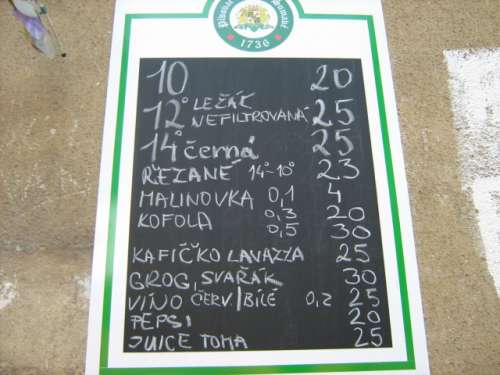 1736
10 20
12° LEŽÁK NEFILTROVANÁ 25
14° černá 25
ŘEZANÉ 14°-10° 23
MALINOVKA 0,1 4
KOFOLA 0,3 20
0,5 30
KAFÍČKO LAVAZZA 25
GROG, SVAŘÁK 30
VÍNO ČERV./BÍLÉ 0,2 25
PEPSI 20
JUICE TOMA 25